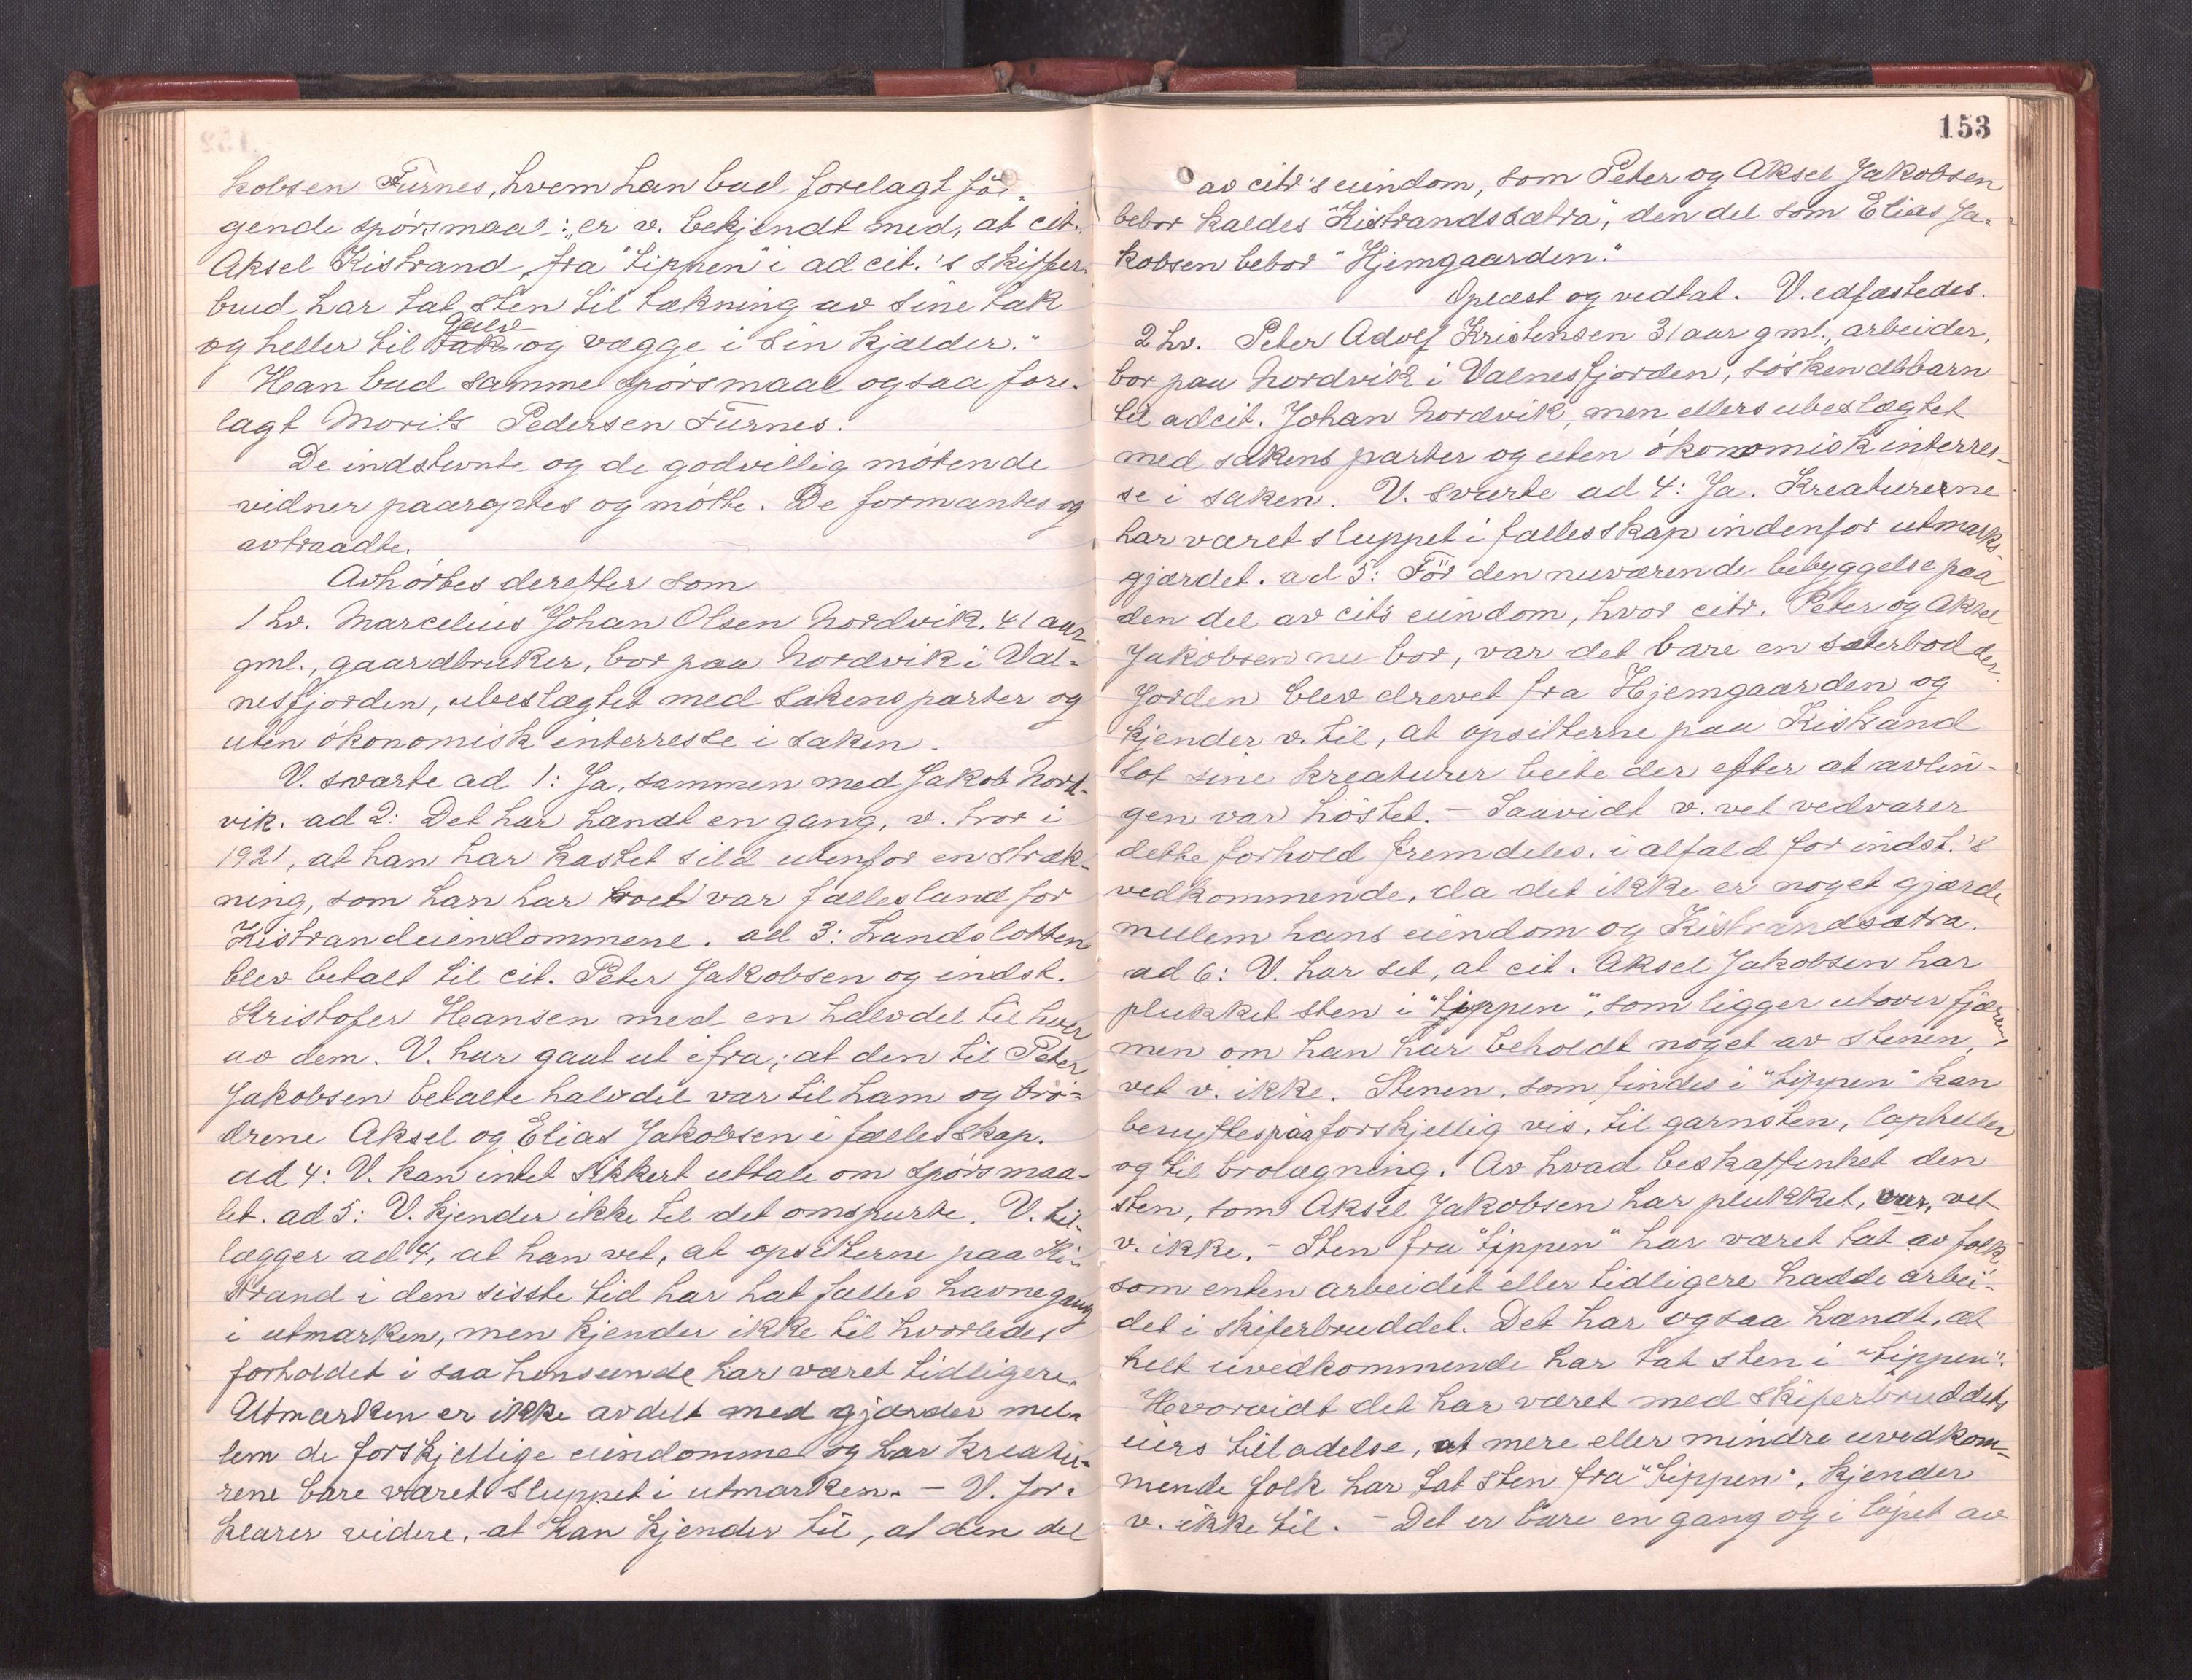 kobsen Furnes, hvem han bad forelagt föl-
gende spörsmaal: "er v. bekjendt med, at cit.
Aksel Kistrand fra "tippen" i ad cit.'s skifer-
brud har tat sten til tækning av sine tak
og heller til gulv og vægge i sin kjælder."
Han bad samme spörsmaal ogsaa fore-
lagt Morits Pedersen Furnes.
De indstevnte og de godvillig mötende
vidner paaroptes og mötte. De formantes og
avtraadte.
Avhörtes derefter som
1 hv. Marcelius Johan Olsen Nordvik. 41 aar
gml., gaardbruker, bor paa Nordvik i Val-
nesfjorden, ubeslægtet med sakens parter og
uten ökonomisk interresse i saken.
V. svarte ad 1: Ja, sammen med Jakob Nord-
vik. ad 2: Det har hændt en gang, v. tror i
1921, at han har kastet sild utenfor en stræk-
ning, som han har troet var fællesland for
Kistrandeiendommene. ad 3: Landslotten
blev betalt til cit. Peter Jakobsen og indst.
Kristofer Hansen med en halvdel til hver
av dem. V. har gaat ut ifra, at den til Peter
Jakobsen betalte halvdel var til ham og brö-
drene Aksel og Elias Jakobsen i fællesskap.
ad 4: V. kan intet sikkert uttale om spörsmaa-
let. ad 5: V. kjender ikke til det omspurte. V. til-
lægger ad 4, at han vet, at opsitterne paa Ki-
strand i den sisste tid har hat fælles havnegang
i utmarken, men kjender ikke til hvorledes
forholdet i saa henseende har været tidligere.
Utmarken er ikke avdelt med gjærder mel-
lem de forskjellige eiendomme og har kreatu-
rene bare været sluppet i utmarken. - V. for-
klarer videre, at han kjender til, at den del
153
av citr's eiendom, som Peter og Aksel Jakobsen
bebor kaldes "Kistrandsætra", den del som Elias Ja-
kobsen bebor "Hjemgaarden".
Oplæst og vedtat. V. edfæstedes.
2 hv. Peter Adolf Kristensen 31 aar gml., arbeider,
bor paa Nordvik i Valnesfjorden, söskendebarn
til adcit. Johan Nordvik, men ellers ubeslægtet
med sakens parter og uten ökonomisk interres-
se i saken. V. svarte ad 4: Ja. Kreaturerne
har været sluppet i fællesskap indenfor utmarks-
gjærdet. ad 5: För den nuværende bebyggelse paa
den del av cit's eiendom, hvor citr. Peter og Aksel
Jakobsen nu bor, var det bare en sæterbod der.
Jorden blev drevet fra Hjemgaarden og
kjender v. til, at opsitterne paa Kistrand
lot sine kreaturer beite der efter at avlin-
gen var höstet. - Saavidt v. vet vedvarer
dette forhold fremdeles, i alfald for indst.'s
vedkommende, da det ikke er noget gjærde
mellem hans eiendom og Kistrandsætra.
ad 6: V. har set, at cit. Aksel Jakobsen har
plukket sten i "tippen", som ligger utover fjæren,
men om han har beholdt noget av stenen,
vet v. ikke. Stenen, som findes i "tippen" kan
benyttes paa forskjellig vis, til garnsten, lapheller
og til brolægning. Av hvad beskaffenhet den
sten, som Aksel Jakobsen har plukket, var, vet
v. ikke. - Sten fra "tippen" har været tat av folk,
som enten arbeidet eller tidligere hadde arbei-
det i skiferbruddet. Det har ogsaa hændt, at
helt uvedkommende har tat sten i "tippen".
Hvorvidt det har været med skiferbruddets
eiers tilladelse, at mere eller mindre uvedkom-
mende folk har tat sten fra "tippen", kjender
v. ikke til. - Det er bare en gang og i löpet av